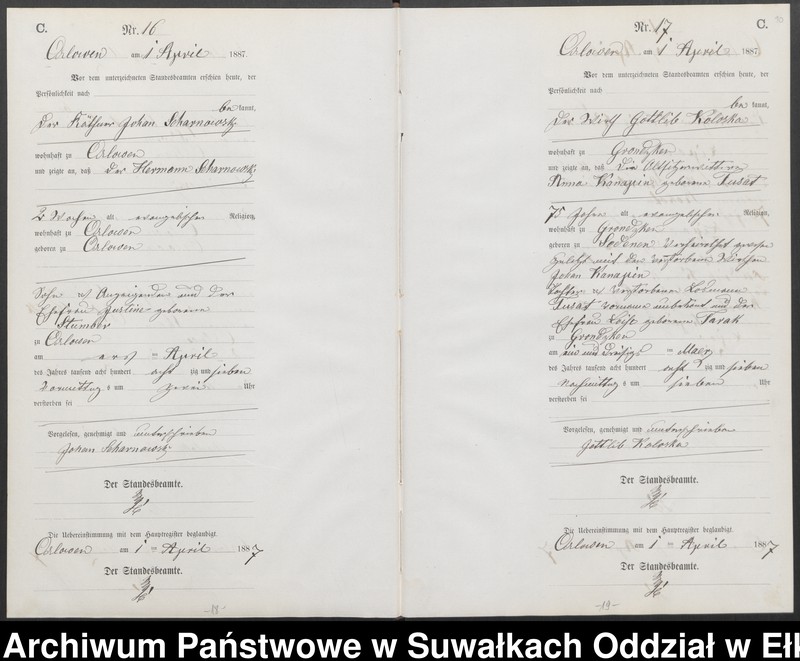 C.
Nr. 16
Orlowen am 1 April 1887.
Vor dem unterzeichneten Standesbeamten erschien heute, der
Persönlichkeit nach
be kannt,
der Käthner Johan Scharnowski
wohnhaft zu Orlowen
und zeigte an, daß der Hermann Scharnowski
2 Wochen alt evangelischer Religion,
wohnhaft zu Orlowen
geboren zu Orlowen
Sohn des Anzeigenden und der
Ehefrau Justine geborene
Stumber
zu Orlowen
am ers ten April
des Jahres tausend acht hundert acht zig und sieben
Vormittag s um zwei Uhr
verstorben sei
Vorgelesen, genehmigt und unterschrieben
Johan Scharnowski
Der Standesbeamte.
Die Uebereinstimmung mit dem Hauptregister beglaubigt.
Orlowen am 1 ten April 1887
Der Standesbeamte.
-18-
Nr. 17
C.
Orlowen am 1 April 1887
Vor dem unterzeichneten Standesbeamten erschien heute, der
Persönlichkeit nach
be kannt,
der Wirth Gottlib Koloska
wohnhaft zu Grondzken
und zeigte an, daß die Altsitzerwittwe
Anna Kanazin geborene Tusat
75 Jahre alt evangelischer Religion,
wohnhaft zu Grondzken
geboren zu Sodenen Verheirathet gewesen
zuletzt mit den verstorbenen Wirthen
Johan Kanazin
Tochter des verstorbenen Losmann
Tusat vorname unbekant und der
Ehefrau Loise geborene Tarak
zu Grondzken
am ein und dreißigs ten Maerz
des Jahres tausend acht hundert acht zig und sieben
Nachmittag s um sieben Uhr
verstorben sei
Vorgelesen, genehmigt und unterschrieben
Gottlib Koloska
Der Standesbeamte.
Die Uebereinstimmung mit dem Hauptregister beglaubigt.
Orlowen am 1 ten April 1887
Der Standesbeamte.
-19-
Archiwum Państwowe w Suwałkach Oddział w Ełk